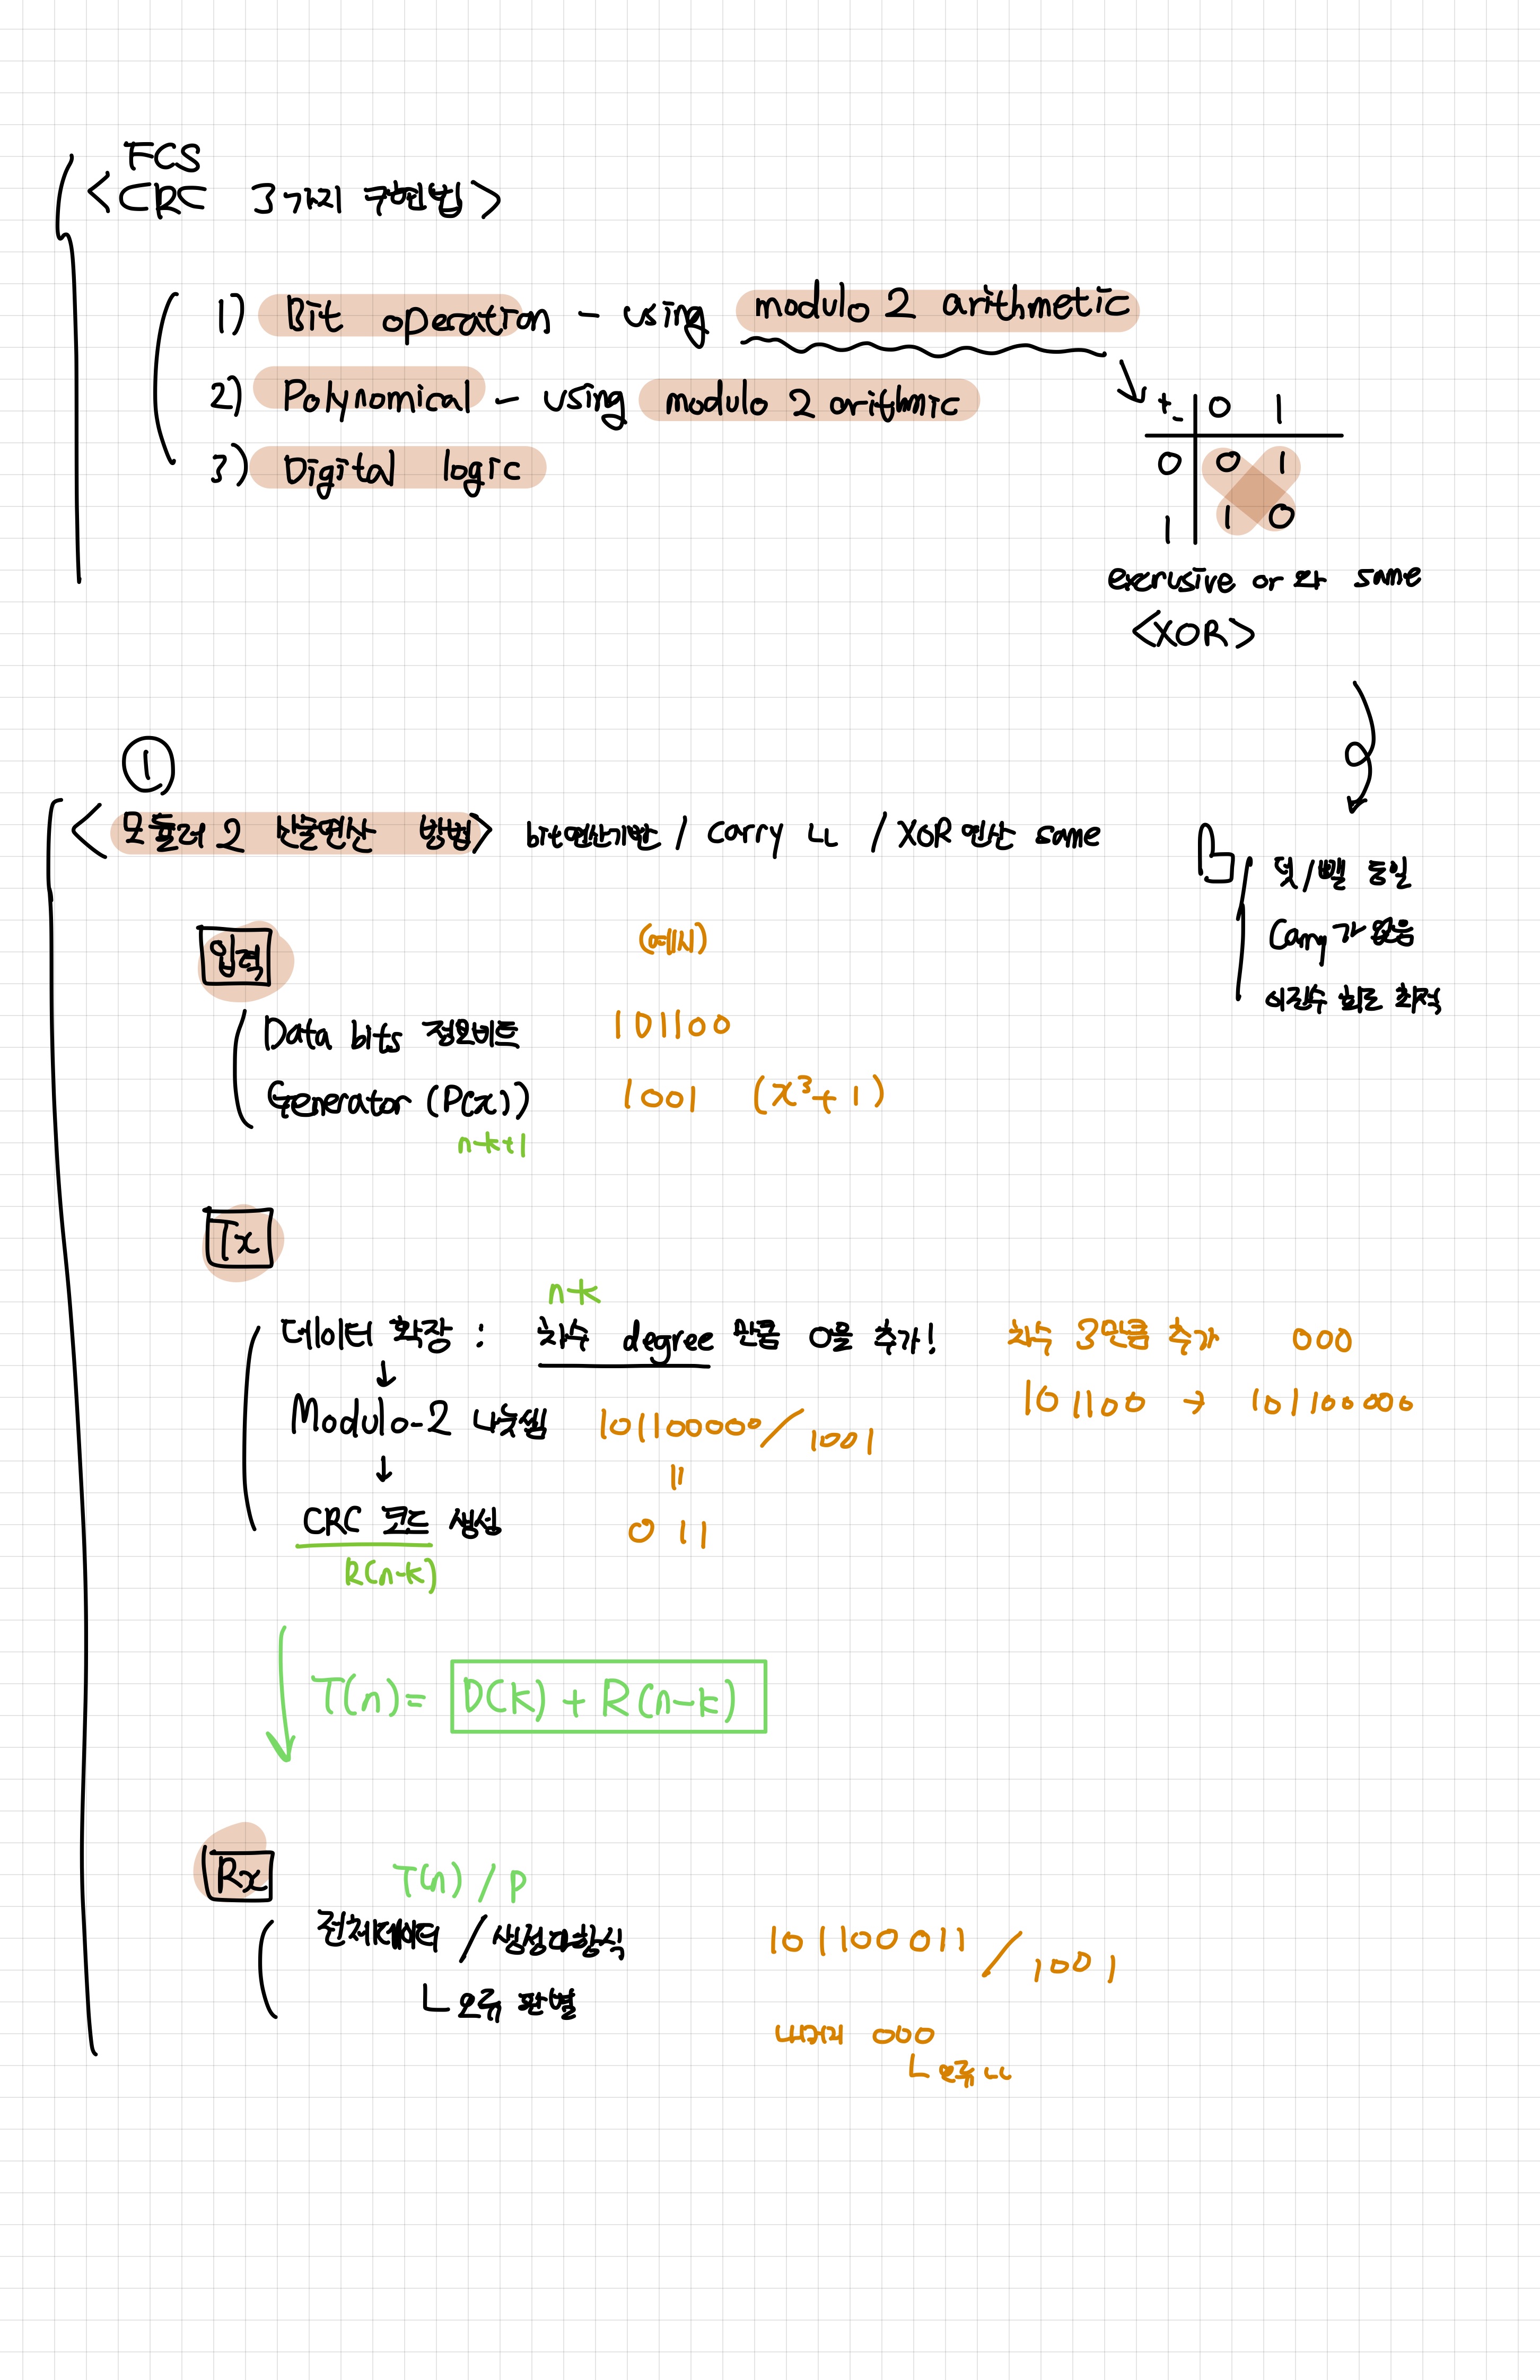 FCS
<CRC 3가지 구현법>
1) Bit operation - using modulo 2 arithmetic
2) Polynomical - using modulo 2 arithmic
3) Digital logic
+ - 0 1
0 0 1
1 1 0
excrusive or 와 same
<XOR>
①
<모듈러 2 산술연산 방법> bit연산기반 / Carry ㄴㄴ / XOR 연산 same
덧/뺄 동일
Carry가 없음
이진수 회로 최적
입력
(예시)
Data bits 정보비트 101100
Generator (P(x)) 1001 (x³+1)
n-k+1
Tx
n-k
데이터 확장 : 차수 degree 만큼 0을 추가! 차수 3만큼 추가 000
↓ 101100 → 101100000
Modulo-2 나눗셈 101100000/1001
↓ =
CRC 코드 생성 011
R(n-k)
T(n) = D(k) + R(n-k)
Rx
T(n) / P
전체데이터 / 생성다항식 101100011 / 1001
ㄴ 오류 판별
나머지 000
ㄴ 오류 ㄴㄴ